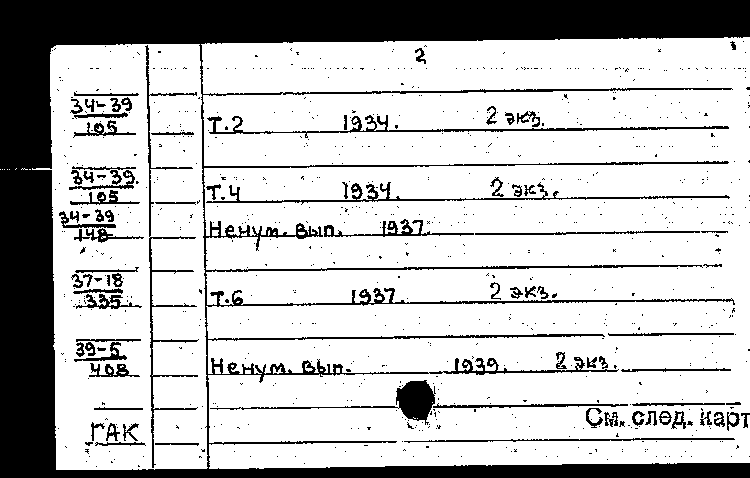 2
34-39
105 Т.2 1934. 2 экз.
34-39.
105 Т.4 1934. 2 экз.
34-39
148 Ненум. вып. 1937.
37-18
335 Т.6 1937. 2 экз.
39-5
408 Ненум. вып. 1939. 2 экз.
См. след. карт
ГАК